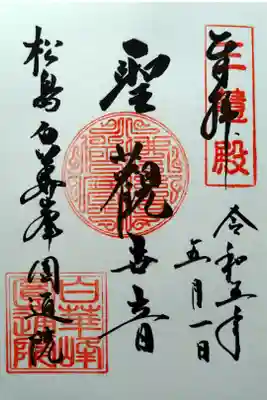 三慧殿
奉拝
令和五年
五月一日
聖觀世音
松島白華峯圓通院
白華峰
圓通院